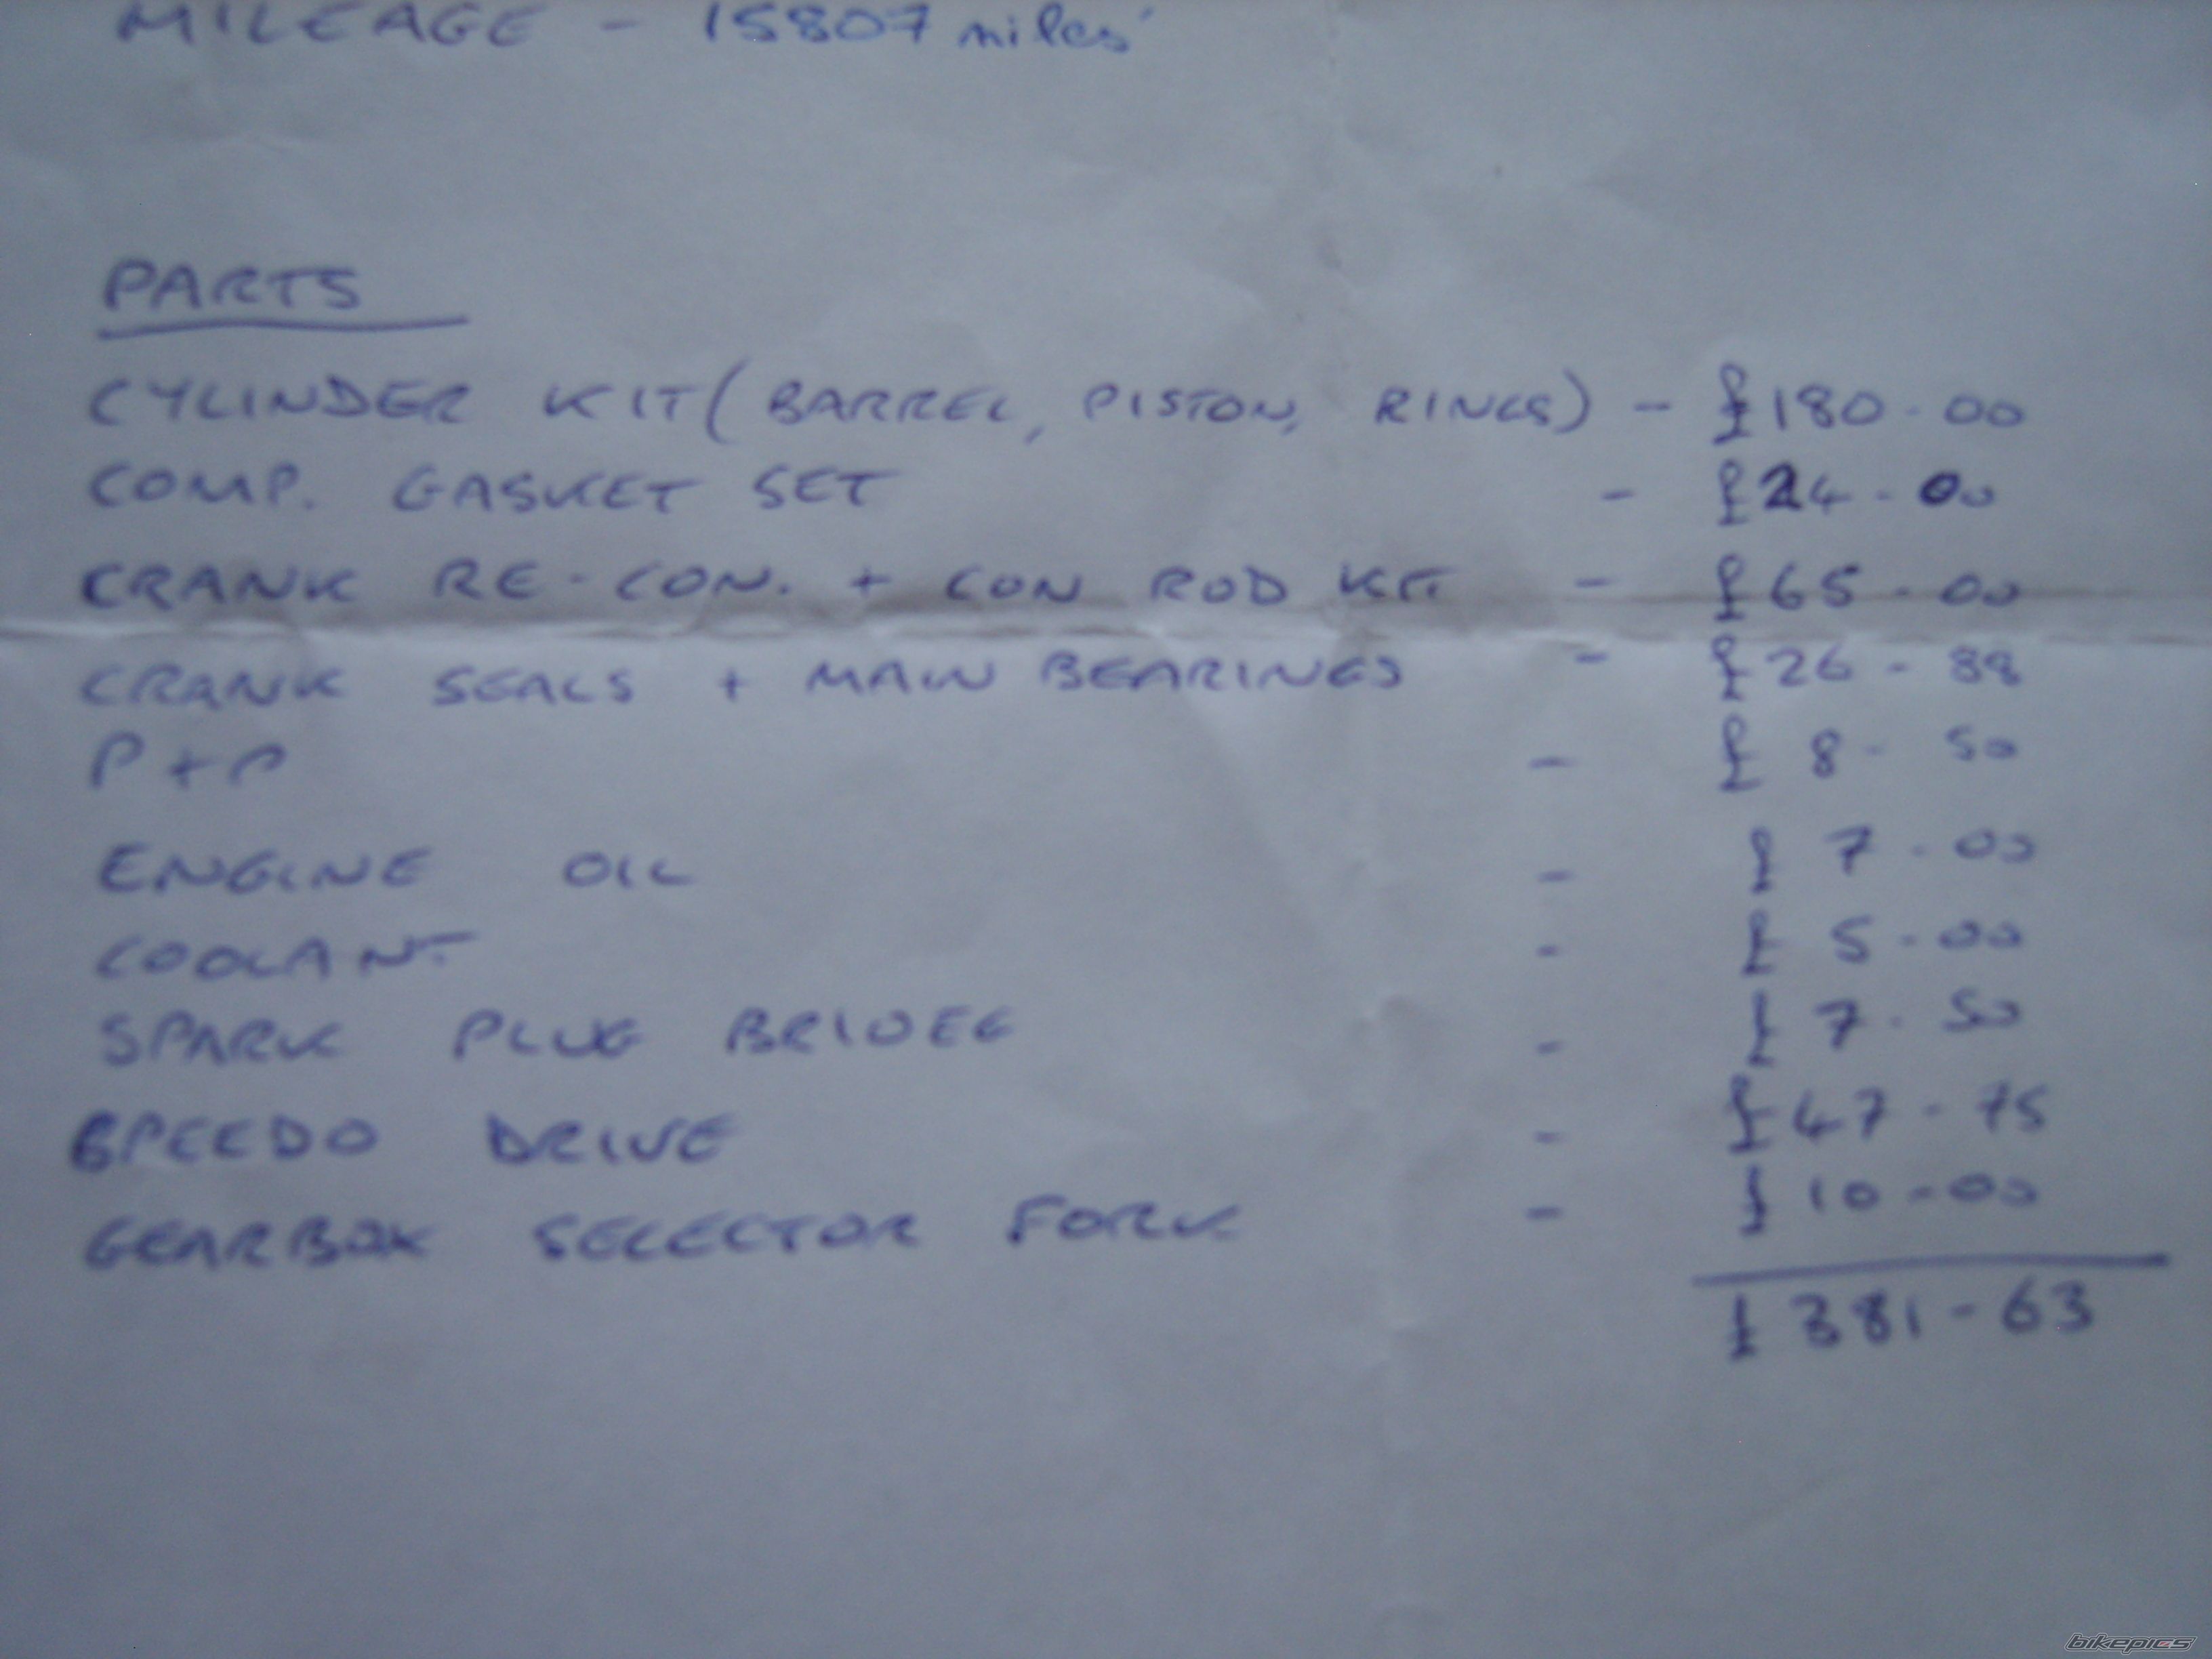 MILEAGE - 15807 miles
PARTS
CYLINDER KIT (BARREL, PISTON, RINGS) - £180-00
COMP. GASKET SET - £24-00
CRANK RE-CON. + CON ROD KIT - £65-00
CRANK SEALS + MAIN BEARINGS - £26-88
P+P - £8-50
ENGINE OIL - £7-00
COOLANT - £5-00
SPARK PLUG BRIDGE - £7-50
SPEEDO DRIVE - £47-75
GEARBOX SELECTOR FORK - £10-00
£381-63
bikepics